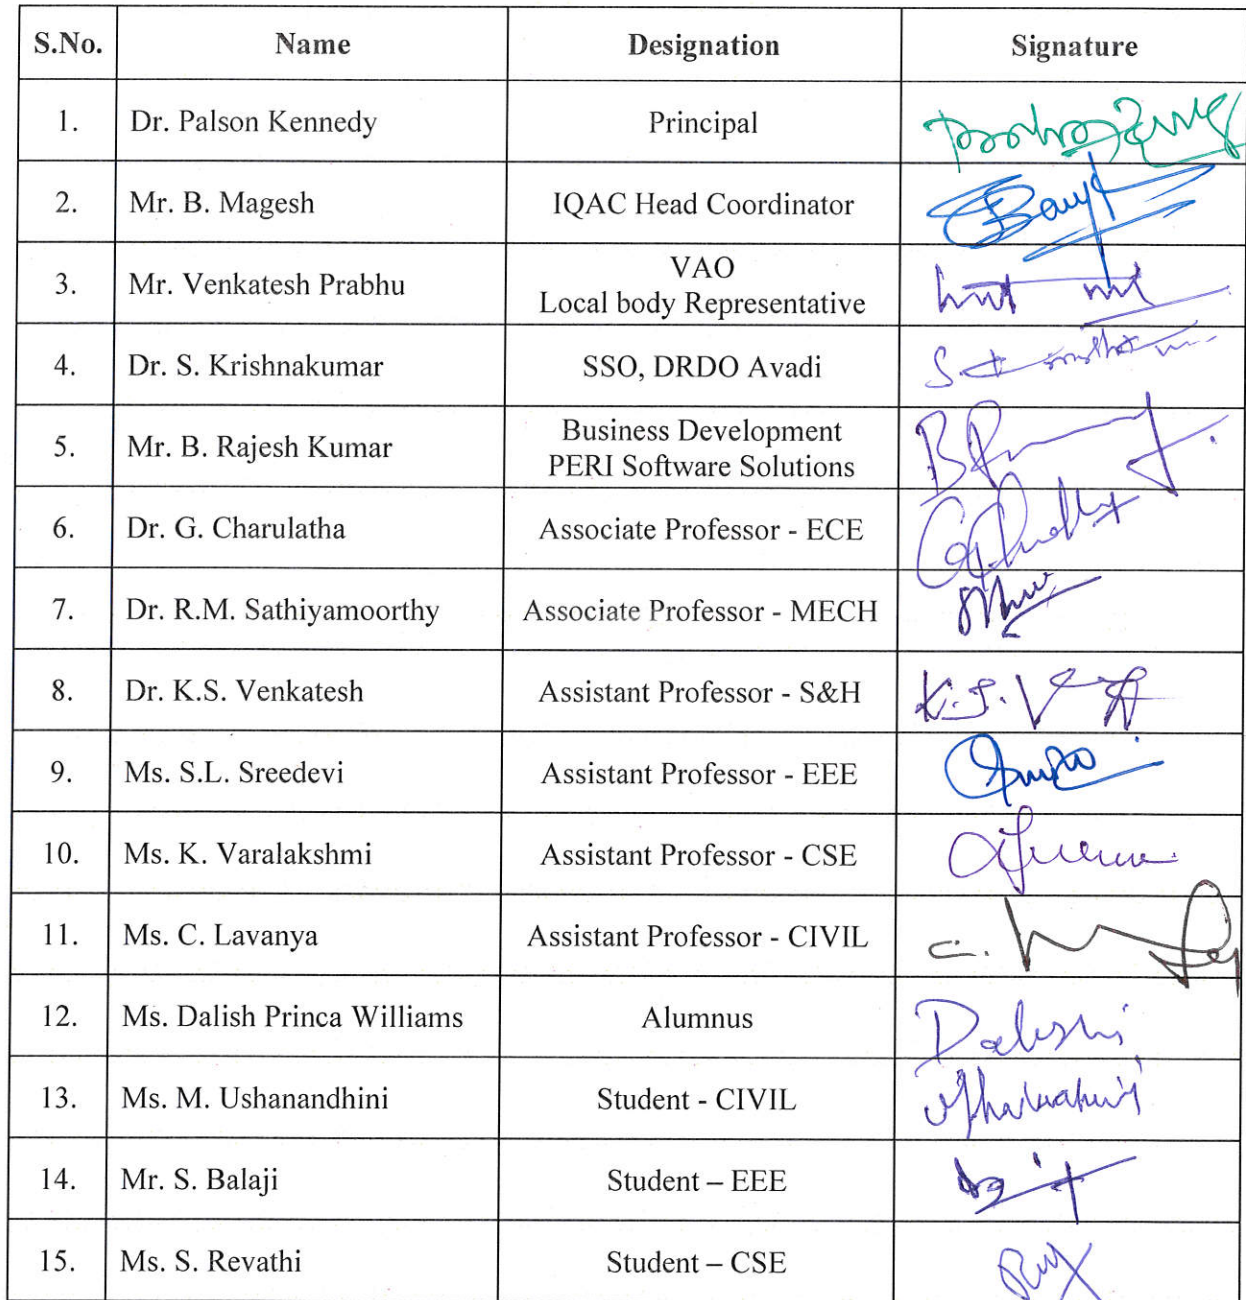 S.No. Name Designation Signature
1. Dr. Palson Kennedy Principal
2. Mr. B. Magesh IQAC Head Coordinator
3. Mr. Venkatesh Prabhu VAO
Local body Representative
4. Dr. S. Krishnakumar SSO, DRDO Avadi
5. Mr. B. Rajesh Kumar Business Development
PERI Software Solutions
6. Dr. G. Charulatha Associate Professor - ECE
7. Dr. R.M. Sathiyamoorthy Associate Professor - MECH
8. Dr. K.S. Venkatesh Assistant Professor - S&H
9. Ms. S.L. Sreedevi Assistant Professor - EEE
10. Ms. K. Varalakshmi Assistant Professor - CSE
11. Ms. C. Lavanya Assistant Professor - CIVIL
12. Ms. Dalish Princa Williams Alumnus
13. Ms. M. Ushanandhini Student - CIVIL
14. Mr. S. Balaji Student – EEE
15. Ms. S. Revathi Student – CSE